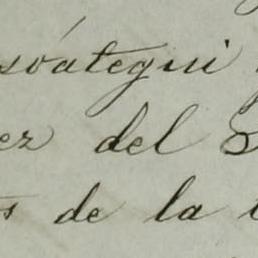 soátegui
ez del
s de la